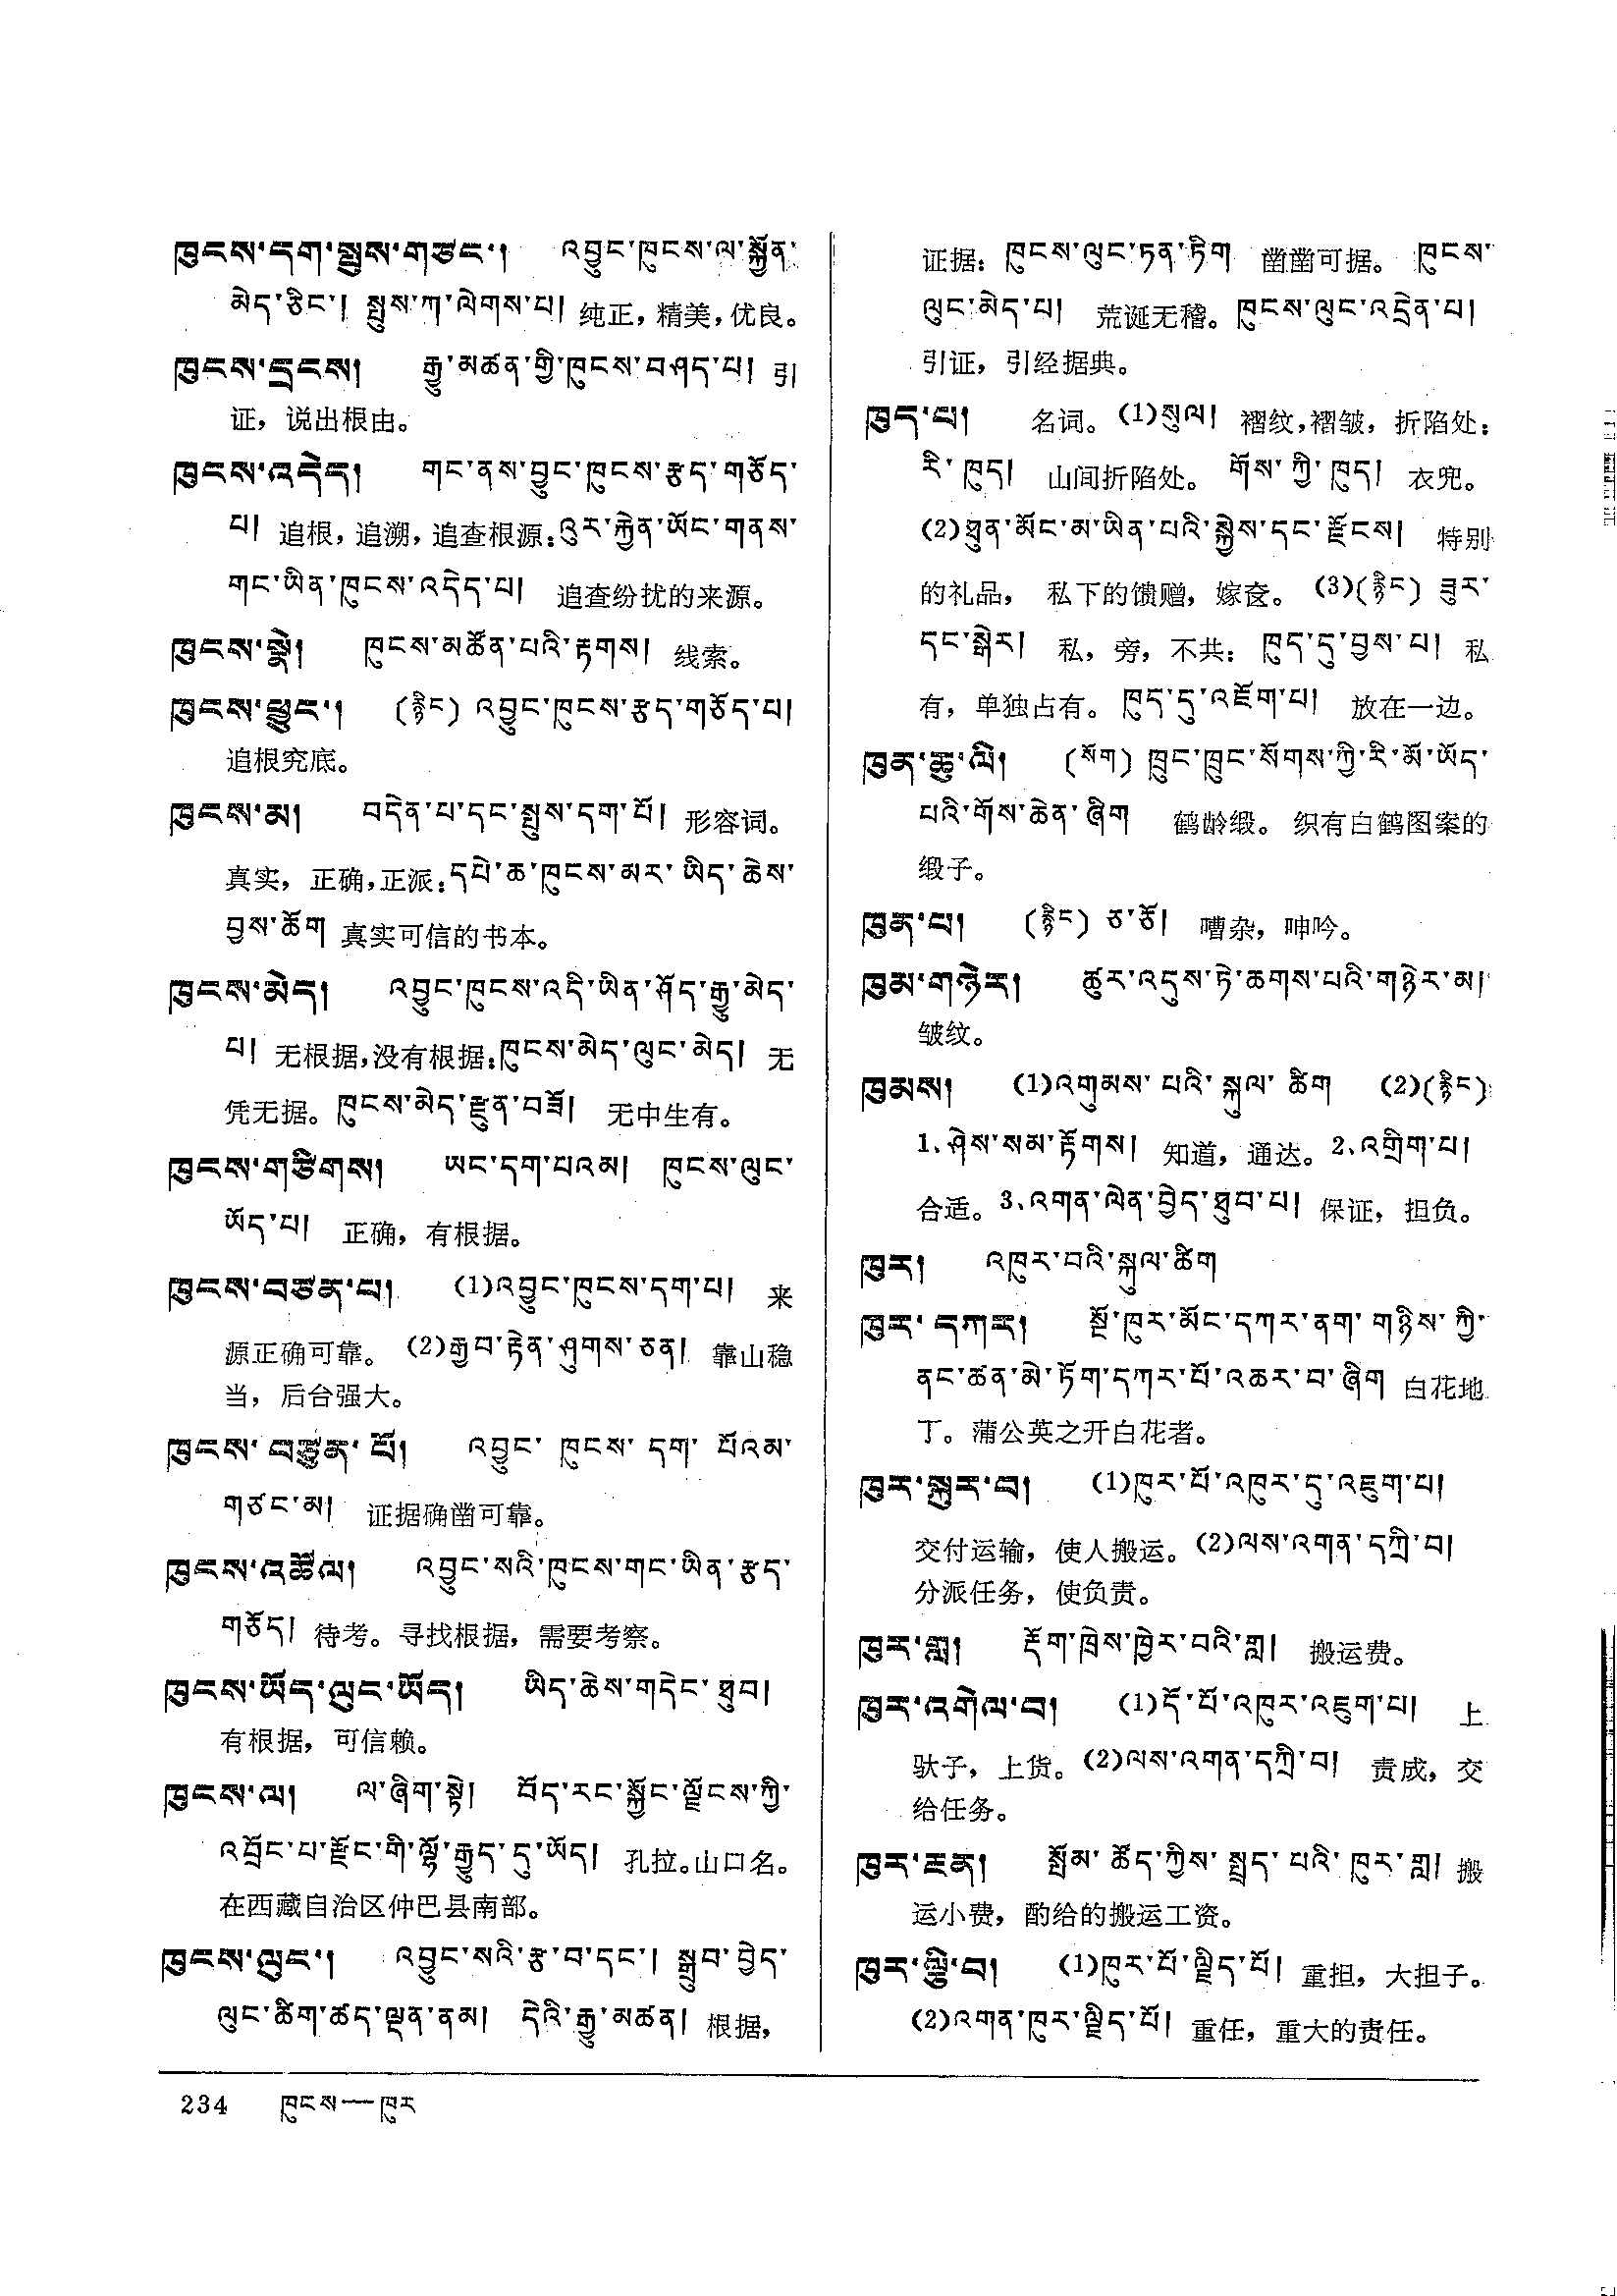 ཁུངས་དག་སྤུས་གཙང་། འབྱུང་ཁུངས་ལ་སྐྱོན་
མེད་ཅིང་། སྤུས་ཀ་ལེགས་པ། 纯正，精美，优良。
ཁུངས་དྲངས། རྒྱུ་མཚན་གྱི་ཁུངས་བཤད་པ། 引
证，说出根由。
ཁུངས་འདེད། གང་ནས་བྱུང་ཁུངས་རྩད་གཅོད་
པ། 追根，追溯，追查根源：འུར་རྐྱེན་ཡོང་གནས་
གང་ཡིན་ཁུངས་འདེད་པ། 追查纷扰的来源。
ཁུངས་སྣེ། ཁུངས་མཚོན་པའི་རྟགས། 线索。
ཁུངས་ཕྱུང་། (རྙིང) འབྱུང་ཁུངས་རྩད་གཅོད་པ།
追根究底。
ཁུངས་མ། བདེན་པ་དང་སྤུས་དག་པོ། 形容词。
真实，正确，正派：དཔེ་ཆ་ཁུངས་མར་ཡིད་ཆེས་
བྱས་ཆོག 真实可信的书本。
ཁུངས་མེད། འབྱུང་ཁུངས་འདི་ཡིན་ཤོད་རྒྱུ་མེད་
པ། 无根据，没有根据：ཁུངས་མེད་ལུང་མེད། 无
凭无据。ཁུངས་མེད་རྫུན་བཟོ། 无中生有。
ཁུངས་གཙིགས། ཡང་དག་པའམ། ཁུངས་ལུང་
ཡོད་པ། 正确，有根据。
ཁུངས་བཙན་པ། (1)འབྱུང་ཁུངས་དག་པ། 来
源正确可靠。 (2)རྒྱབ་རྟེན་ཤུགས་ཅན། 靠山稳
当，后台强大。
ཁུངས་བཙུན་པོ། འབྱུང་ཁུངས་དག་པོའམ་
གཙང་མ། 证据确凿可靠。
ཁུངས་འཚོལ། འབྱུང་སའི་ཁུངས་གང་ཡིན་རྩད་
གཅོད། 待考。寻找根据，需要考察。
ཁུངས་ཡོད་ལུང་ཡོད། ཡིད་ཆེས་གདེང་ཐུབ།
有根据，可信赖。
ཁུངས་ལ། ལ་ཞིག་སྟེ། བོད་རང་སྐྱོང་ལྗོངས་ཀྱི་
འབྲོང་པ་རྫོང་གི་ལྷོ་རྒྱུད་དུ་ཡོད། 孔拉。山口名。
在西藏自治区仲巴县南部。
ཁུངས་ལུང་། འབྱུང་སའི་རྩ་བ་དང་། སྒྲུབ་བྱེད་
ལུང་ཚིག་ཚད་ལྡན་ནམ། དེའི་རྒྱུ་མཚན། 根据，
证据：ཁུངས་ལུང་ཏན་ཏིག 凿凿可据。 ཁུངས་
ལུང་མེད་པ། 荒诞无稽。ཁུངས་ལུང་འདྲེན་པ།
引证，引经据典。
ཁུད་པ། 名词。(1)སུལ། 褶纹，褶皱，折陷处：
རི་ཁུད། 山间折陷处。 གོས་ཀྱི་ཁུད། 衣兜。
(2)ཐུན་མོང་མ་ཡིན་པའི་སྐྱེས་དང་རྫོངས། 特别
的礼品， 私下的馈赠，嫁奁。 (3)(རྙིང) ཟུར་
དང་སྒེར། 私，旁，不共：ཁུད་དུ་བྱས་པ། 私
有，单独占有。ཁུད་དུ་འཇོག་པ། 放在一边。
ཁུན་ཆུ་ལི། (སོག) ཁྲུང་ཁྲུང་སོགས་ཀྱི་རི་མོ་ཡོད་
པའི་གོས་ཆེན་ཞིག 鹤龄缎。 织有白鹤图案的
缎子。
ཁུན་པ། (རྙིང) ཅ་ཅོ། 嘈杂，呻吟。
ཁུམ་གཉེར། ཚུར་འདུས་ཏེ་ཆགས་པའི་གཉེར་མ།
皱纹。
ཁུམས། (1)འགུམས་པའི་སྐུལ་ཚིག (2)(རྙིང)
1、ཤེས་སམ་རྟོགས། 知道，通达。2、འགྲིག་པ།
合适。3、འགན་ལེན་བྱེད་ཐུབ་པ། 保证，担负。
ཁུར། འཁུར་བའི་སྐུལ་ཚིག
ཁུར་དཀར། སྔོ་ཁུར་མོང་དཀར་ནག་གཉིས་ཀྱི་
ནང་ཚན་མེ་ཏོག་དཀར་པོ་འཆར་བ་ཞིག 白花地
丁。蒲公英之开白花者。
ཁུར་སྐུར་བ། (1)ཁུར་པོ་འཁུར་དུ་འཇུག་པ།
交付运输，使人搬运。(2)ལས་འགན་དཀྲི་བ།
分派任务，使负责。
ཁུར་གླ། རྡོག་ཁྲེས་ཁྱེར་བའི་གླ། 搬运费。
ཁུར་འགེལ་བ། (1)དོ་པོ་འཁུར་འཇུག་པ། 上
驮子，上货。(2)ལས་འགན་དཀྲི་བ། 责成，交
给任务。
ཁུར་ངན། སྤོམ་ཚོད་ཀྱིས་སྤྲད་པའི་ཁུར་གླ། 搬
运小费，酌给的搬运工资。
ཁུར་ལྕི་བ། (1)ཁུར་པོ་ལྗིད་པོ། 重担，大担子。
(2)འགན་ཁུར་ལྗིད་པོ། 重任，重大的责任。
234 ཁུངས—ཁུར